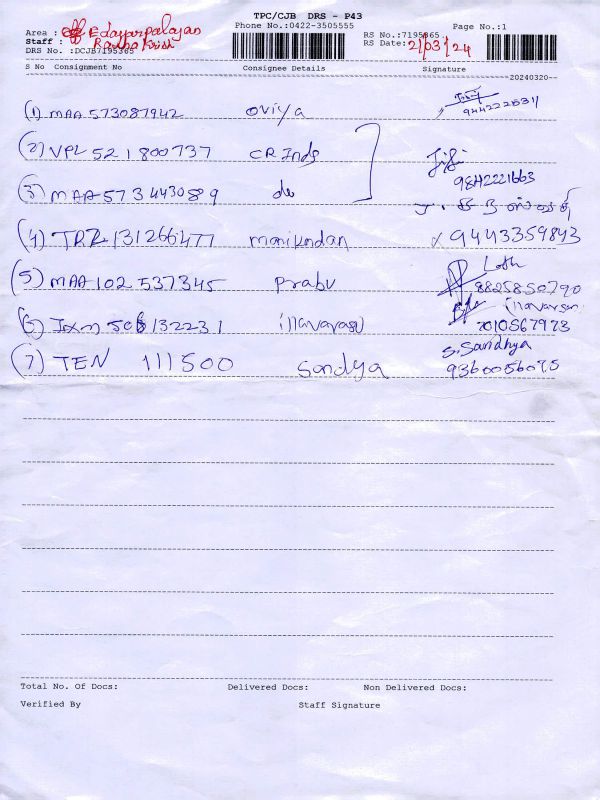 TPC/CJB DRS - P43
Phone No.:0422-3505555
Page No.:1
Area : Edayarpalayan
Staff :
RS No.:7195365
DRS No. :DCJB7195365
RS Date: 21/03/24
S No Consignment No Consignee Details Signature
20240320--
(1) MAA 573087942 oviya 9442225311
(2) VPL 521800737 CR Inds Jiji 9842221663
(3) MAA 573443089 do
(4) TRZ 131266477 manikandan 9443359843
(5) MAA 102 537345 prabu 8825850790
(6) 506132231 illavarasu 7010567973
(7) TEN 111500 Sandya S. Sandhya 9360056075
Total No. Of Docs: Delivered Docs: Non Delivered Docs:
Verified By Staff Signature